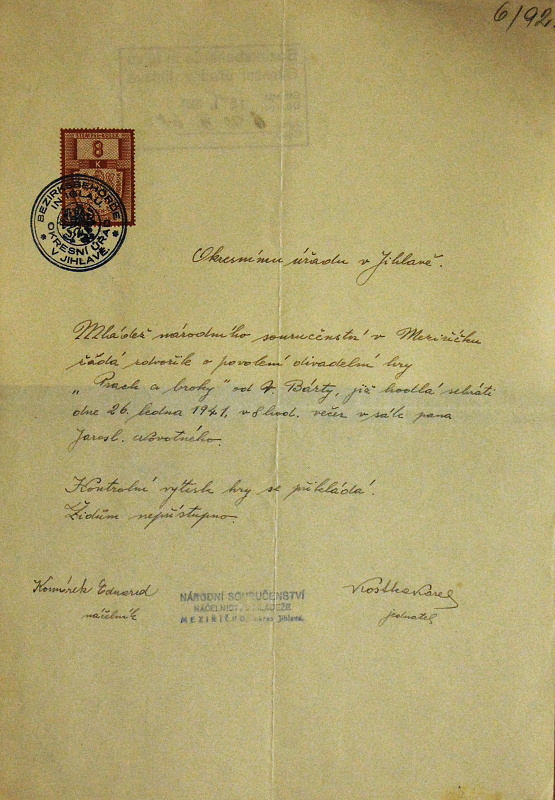 6/92
STEMPEL-KOLEK
8
K
BEZIRKSBEHÖRDE
IN IGLAU.
OKRESNÍ ÚŘAD
V JIHLAVĚ.
Okresnímu úřadu v Jihlavě.
Mládež národního souručenství v Meziříčku
žádá zdvořile o povolení divadelní hry
„Prach a broky" od F. Bárty, již hodlá sehráti
dne 26. ledna 1941, v 8 hod. večer v sále pana
Jarosl. Novotného.
Kontrolní výtisk hry se přikládá.
Židům nepřístupno.
Komárek Eduard
náčelník
NÁRODNÍ SOURUČENSTVÍ
NÁČELNICTVO MLÁDEŽE
MEZIŘÍČKO, okres Jihlava.
Kostka Karel
jednatel